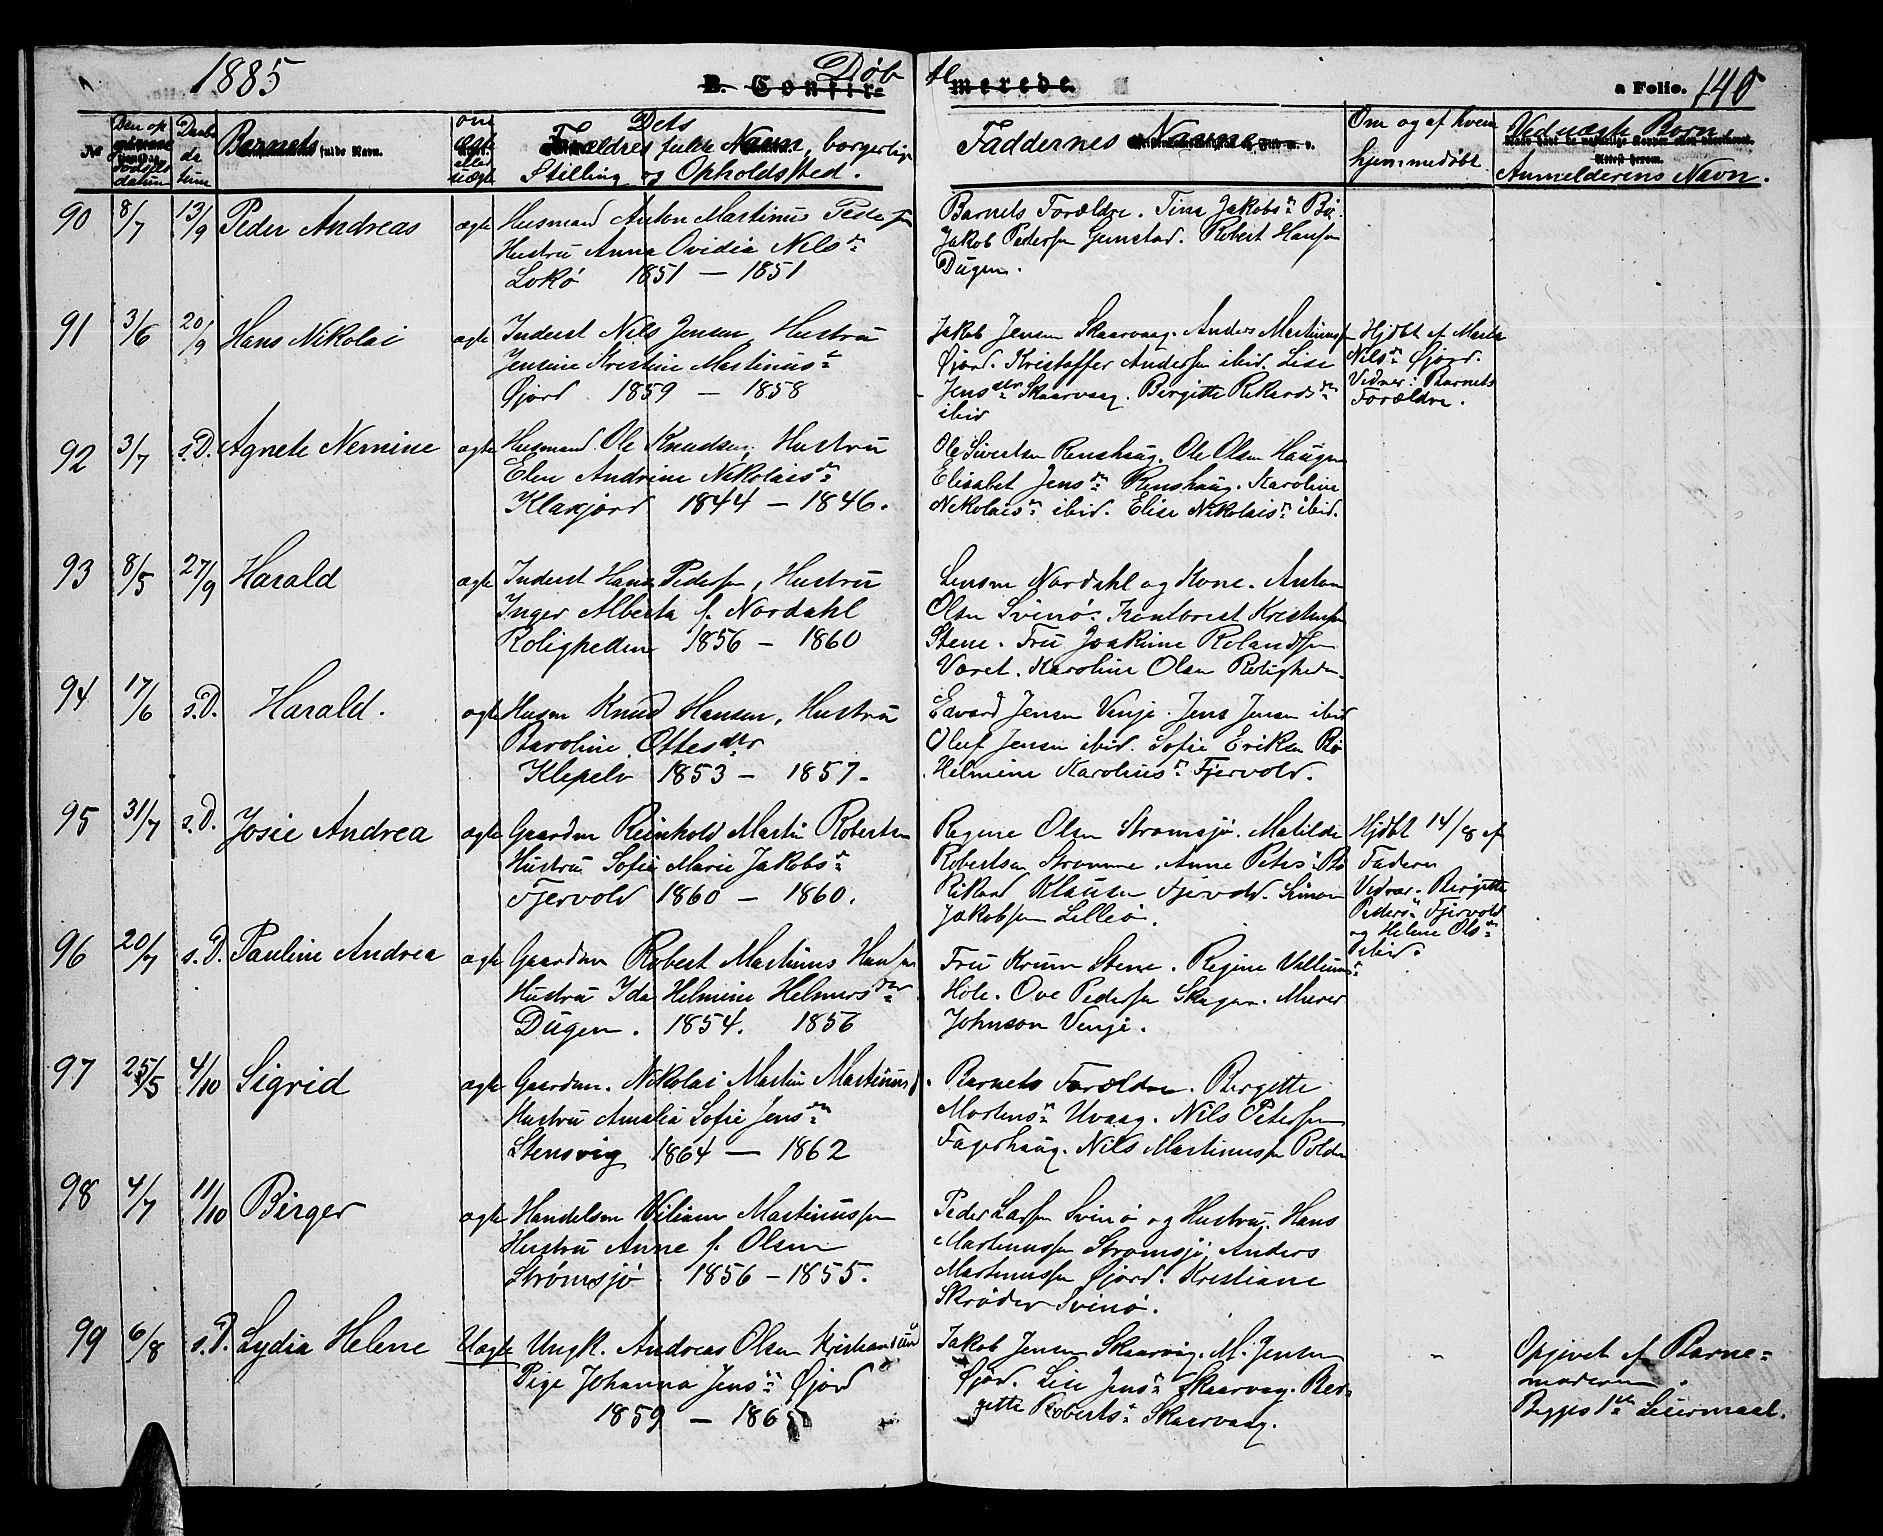 1885 Døbte a Folio. 140
B. Confirmerede.
No Den op Fødsels datum Daabs datum Barnets fulde Navn. om Ægte eller Uægte Dets Forældres fulde Navn, borgerlige Stilling og Opholdssted. Faddernes Navne Om og af hvem hjemmedøbt Ved uægte Born Anmelderens Navn.
90 8/7 13/9 Peder Andreas ægte Husmand Anton Martinus Peders
Hustru Anna Ovidia Nilsdr
Lokø 1851 – 1851
Barnets Forældre. Tina Jakobsdr Bø.
Jakob Pedersen Gunstad. Robert Hansen
Dugen.
91 3/6 20/9 Hans Nikolai ægte Inderst Nils Jensen, Hustru
Jensine Kristine Martinusdr
Øjord 1859 – 1858
Jakob Jensen Skaarvaag. Anders Martinussen
Øjord. Kristoffer Andersen ibid. Lise
Jensdtr Skaarvaag. Birgitte Rikardsdr
ibid
Hjdbt af Marta
Nilsdr Øjord.
Vidner: Barnets
Forældre.
92 3/7 s.D. Agnete Nemine ægte Husmand Ole Knudsen, Hustru
Elen Andrine Nikolaisdr
Klaxjord 1844 – 1846.
Ole Sivertsen Renshaug. Ole Olsen Haugen
Elisabet Jensdr Renshaug. Karoline
Nikolaisdr ibid. Elise Nikolaisdr ibid.
93 8/5 27/9 Harald ægte Inderst Hans Pedersen, Hustru
Inger Alberta f. Nordahl
Roligheden 1856 – 1860
Lensm Nordahl og Kone. Anton
Olsen Svinø. Kontorist Kristensen
Stene. Fru Joakime Rolandsen
Været. Karoline Olsen Roligheden.
94 17/6 s.D. Harald. ægte Husm Knud Hansen, Hustru
Baroline Ottesdtr
Klepelv 1853 – 1857.
Edvard Jensen Vinje. Jens Jensen ibid
Oluf Jensen ibid. Sofie Eriksen Bø
Helmine Karoliusdr Fjervold.
95 31/7 s.D. Josie Andrea ægte Gaardm Reinhold Martin Robertsen
Hustru Sofie Marie Jakobsdr
Fjervold 1860 – 1860.
Regine Olsen Strømsjø. Matilde
Robertsen Strømme. Anne Petersdr Bø
Rikard Klausen Fjervold. Simon
Jakobsen Lilleø.
Hjdbt 14/8 af
Faderen
Vidner. Birgitte
Pedersdr Fjervold
og Helene Olsdr
ibid.
96 20/7 s.D. Pauline Andrea ægte Gaardm Robert Martinus Hansen
Hustru Ida Helmine Helmersdtr
Dugen. 1854. 1856
Fru Krum Stene. Regine Villumsdr
Hole. Ove Pedersen Skagen. Murer
Johnson Vinje.
97 25/5 4/10 Sigrid ægte Gaardm. Nikolai Martin Martinus
Hustru Amalia Sofie Jensdr
Stensvig 1864 – 1862
Barnets Forældre. Bergitte
Mortensdr Uvaag. Nils Petersen
Fagerhaug. Nils Martinussen Polden
98 4/7 11/10 Birger ægte Handelsm Viliam Martinussen
Hustru Anne f. Olsen
Strømsjø 1856 – 1855.
Peder Larsen Svinø og Hustru. Hans
Martinussen Strømsjø, Anders
Martinussen Øjord. Kristiane
Skrøder Svinø.
99 6/8 s.D. Lydia Helene Uægte Ungk. Andreas Olsen Kristiansund
Pige Johanna Jensdr Øjord
1859 – 186
Jakob Jensen Skaarvag. M. Jensen
Øjord. Lise Jensdr Skaarvag. Ber-
gitte Robertsdr Skaarvaag.
Opgivet af Barne-
moderen.
Begges 1ste Leiermaal.